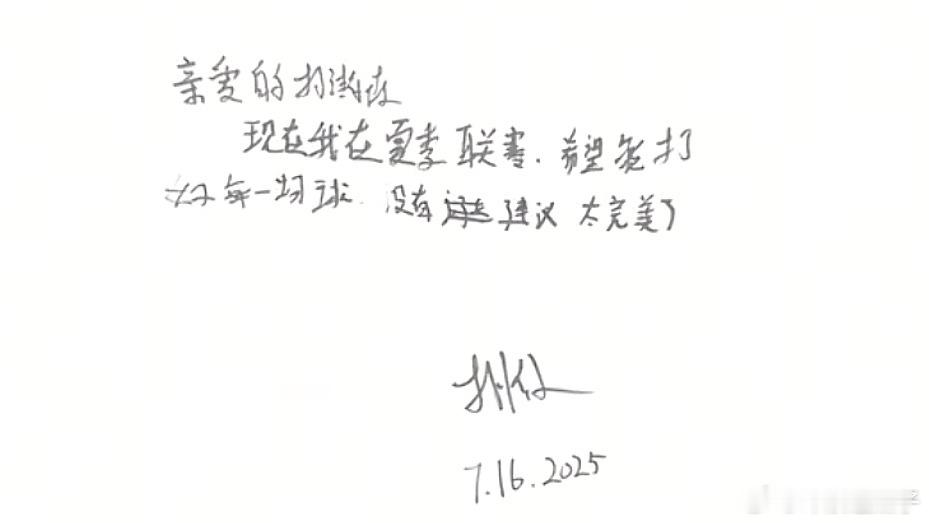 亲爱的杨瀚森
现在我在夏季联赛.希望能打
好每一场球.没有建议 太完美了
7.16.2025